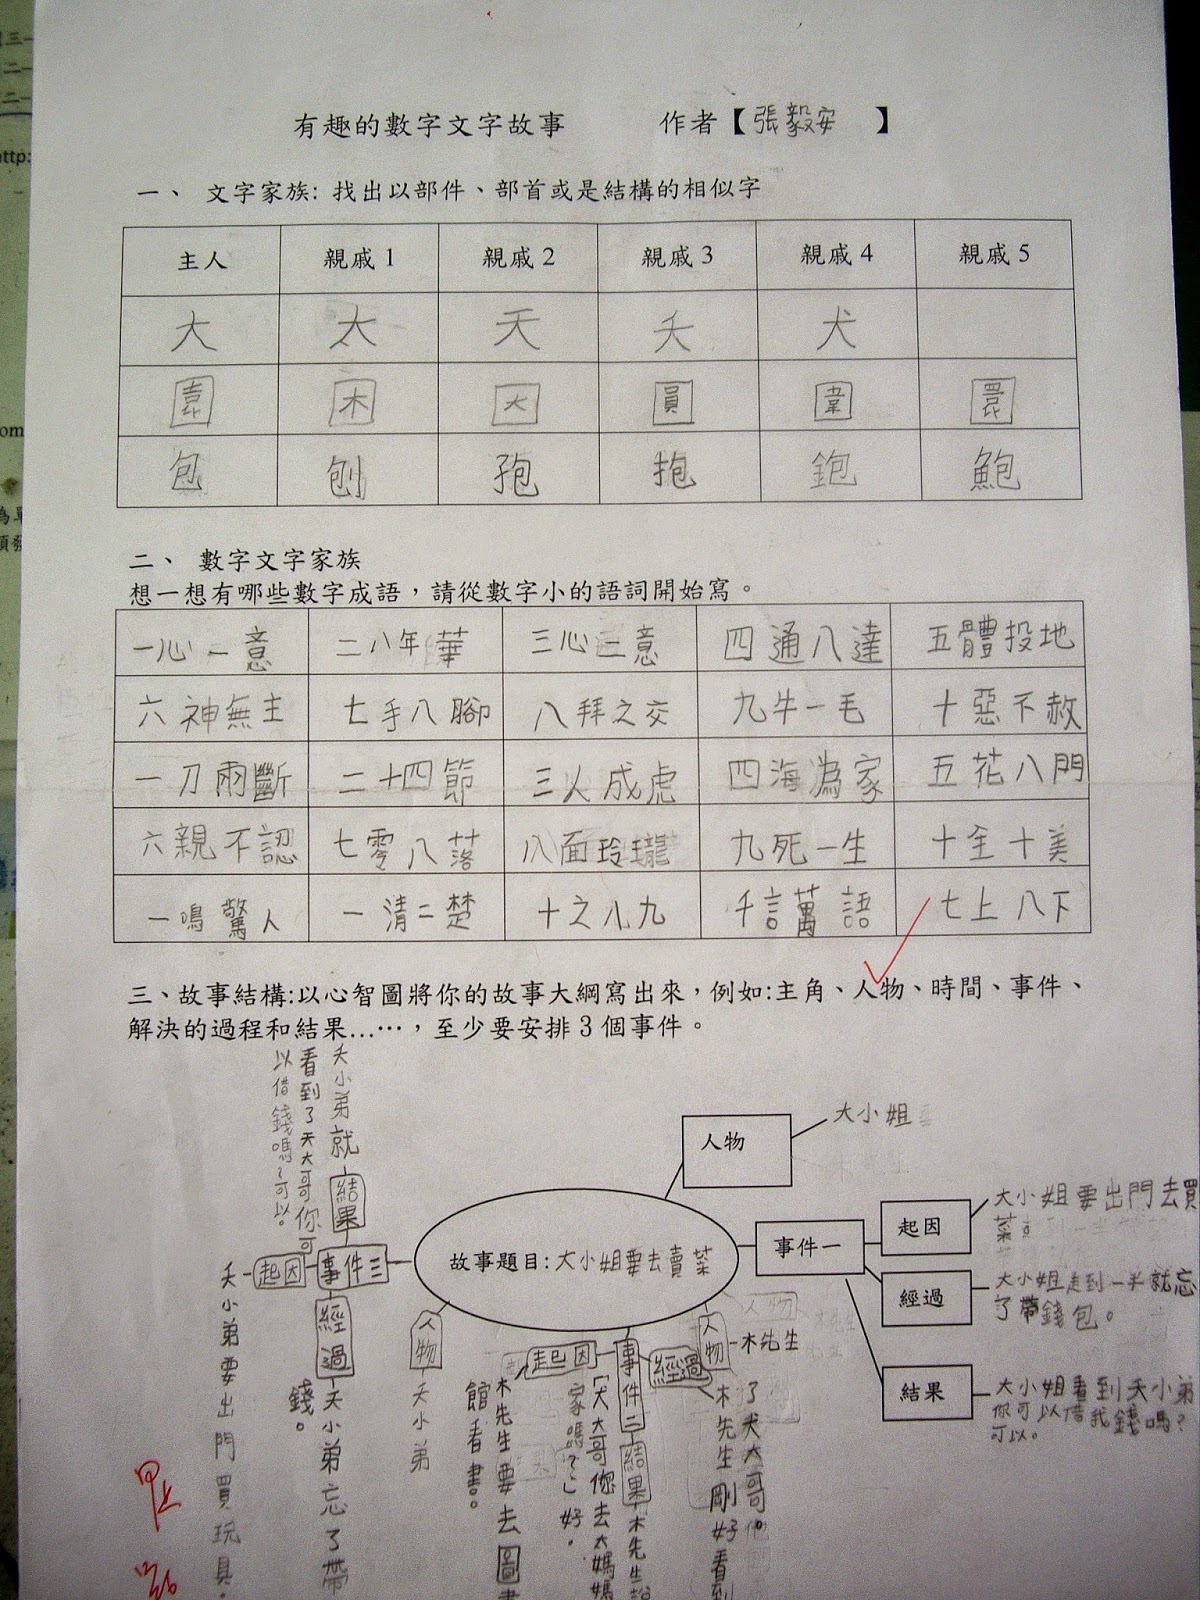 有趣的數字文字故事 作者【張毅安 】
一、 文字家族: 找出以部件、部首或是結構的相似字
主人 親戚1 親戚2 親戚3 親戚4 親戚5
大 太 天 夭 犬
園 困 因 圓 圍 圜
包 刨 孢 抱 鉋 鮑
二、 數字文字家族
想一想有哪些數字成語，請從數字小的語詞開始寫。
一心一意 二八年華 三心二意 四通八達 五體投地
六神無主 七手八腳 八拜之交 九牛一毛 十惡不赦
一刀兩斷 二十四節 三人成虎 四海為家 五花八門
六親不認 七零八落 八面玲瓏 九死一生 十全十美
一鳴驚人 一清二楚 十之八九 千言萬語 七上八下
三、故事結構:以心智圖將你的故事大綱寫出來，例如:主角、人物、時間、事件、
解決的過程和結果...…，至少要安排3個事件。
故事題目:大小姐要去賣菜
人物
大小姐
事件一
起因
大小姐要出門去買
菜
經過
大小姐走到一半就忘
了帶錢包。
結果
大小姐看到夭小弟
你可以借我錢嗎?
可以。
人物
木先生
事件二
起因
木先生要去圖
館看書。
經過
木先生剛好看到
了犬大哥。
結果
木先生
犬大哥你去太媽媽
家嗎?」好。
人物
夭小弟
事件三
起因
夭小弟要出門買玩具。
經過
夭小弟忘了帶
錢。
結果
夭小弟就
看到了天大哥你可
以借錢嗎?可以。